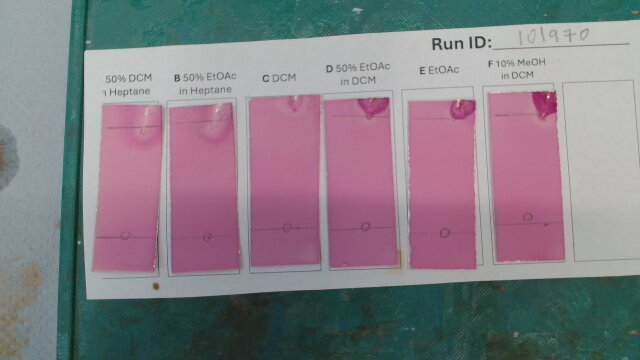 Run ID: 101970
50% DCM
n Heptane
B 50% EtOAc
in Heptane
C DCM
D 50% EtOAc
in DCM
E EtOAc
F 10% MeOH
in DCM